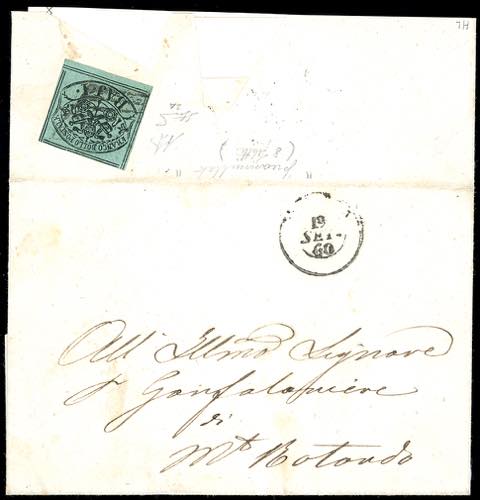 TH
FRANCO BOLLO POSTALE
BAJ
19
SET.
60
All' Illmo Signore
Gonfaloniere
di
Mte Rotondo